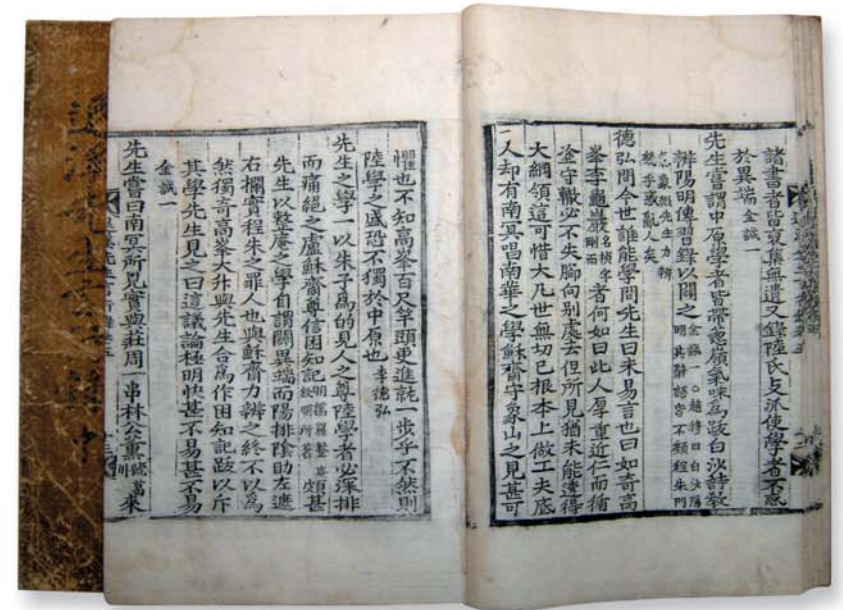 諸書者皆裒集無遺又錄陸氏支流使學者不惑
於異端金誠一
先生嘗謂中原學者皆帶蔥嶺氣味爲跋白沙詩敎
辨陽明傳習錄以闢之
金誠一○趙
明其辭
不類程朱門
先生力辨
幾乎或亂人矣
德弘問今世誰能學問先生曰未易言也曰如奇高
峯李龜巖名楨字剛而者何如曰此人厚重近仁而循
塗守轍必不失脚向別處去但所見猶未能透得
大綱領這可惜大凡世無切己根本上做工夫底
人却有南冥唱南華之學穌齋守象山之見甚可
懼也不知高峯百尺竿頭更進就一步乎不然則
陸學之盛恐不獨於中原也李德弘
先生之學一以朱子爲的見人之尊陸學者必深排
而痛絶之盧穌齋尊信困知記明儒羅整庵欽順所著頗甚
先生以整庵之學自謂闢異端而陽排陰助左遮
右攔實程朱之罪人也與穌齋力辨之終不以爲
然獨奇高峯大升與先生合爲作困知記跋以斥
其學先生見之曰這議論極明快甚不易甚不易
金誠一
先生嘗曰南冥所見實與莊周一串林公薰號葛川來